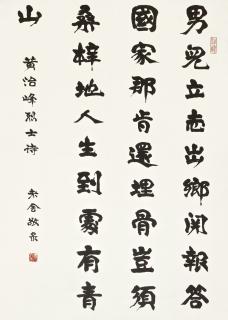 男兒立志出鄉関報答
國家那肯還埋骨豈須
桑梓地人生到處有青
山
黄治峰烈士詩